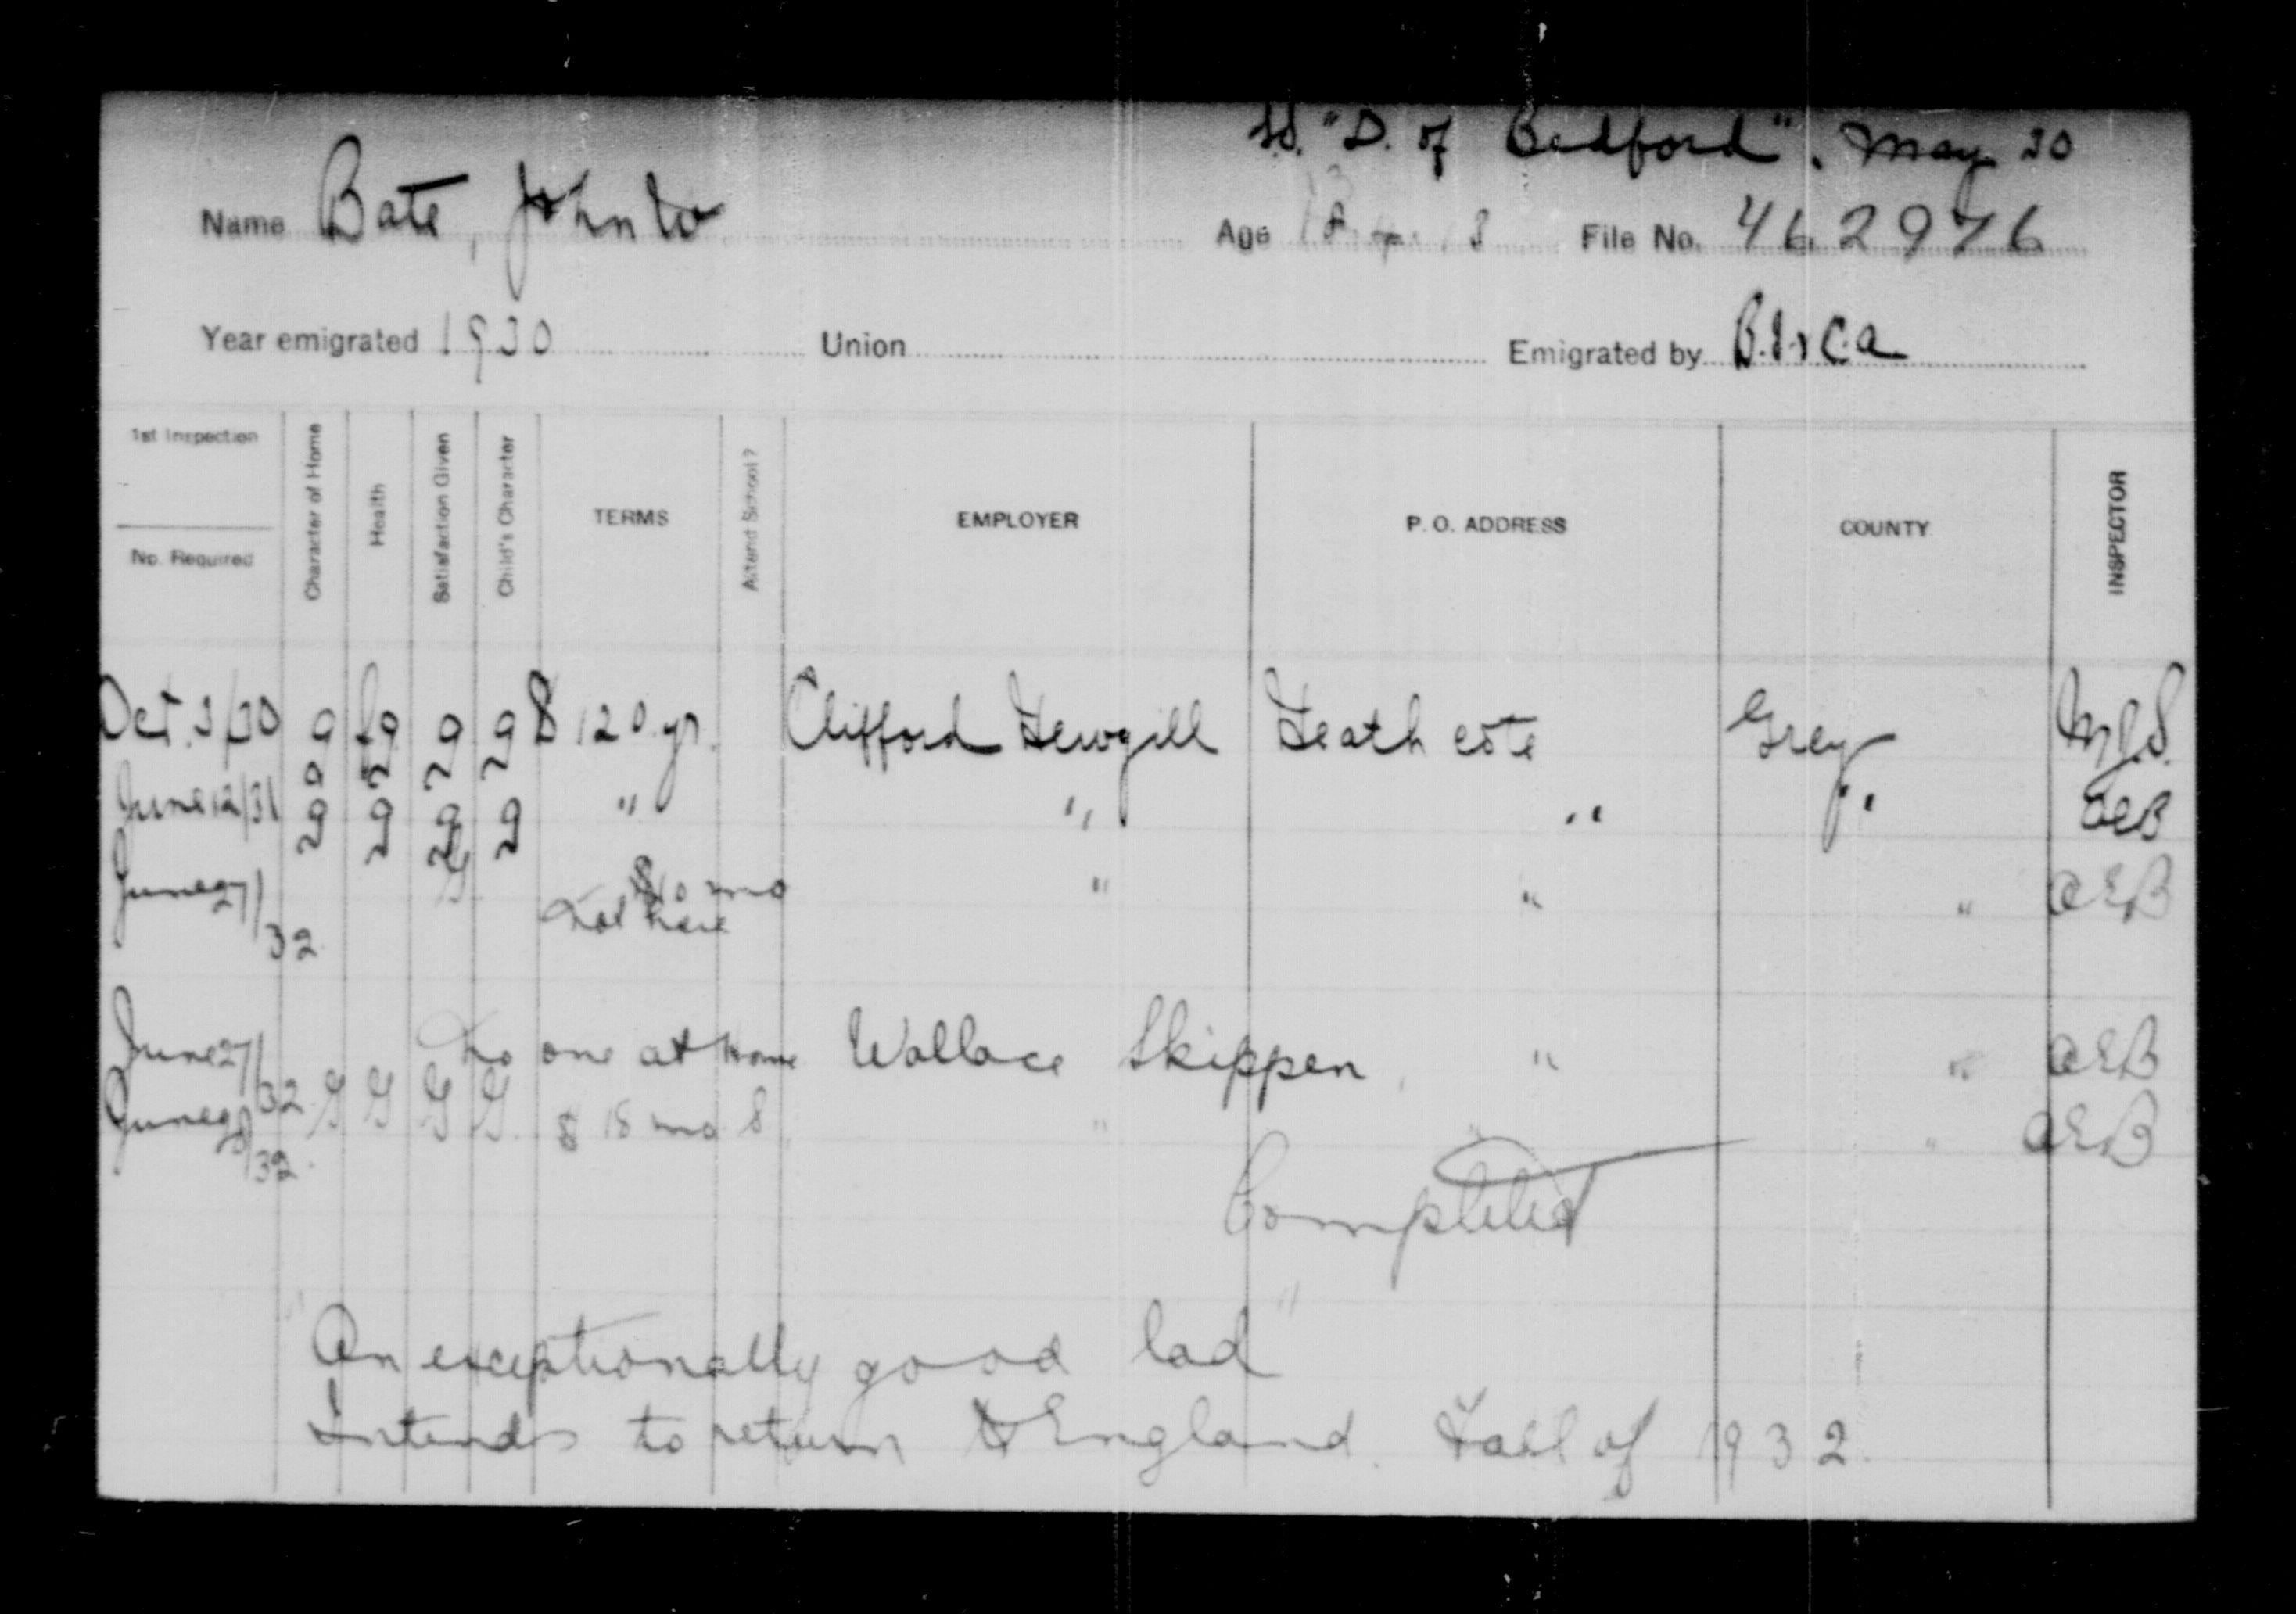 SS. "D. of Bedford". May 30
Name Bate, John W Age 18 File No. 462976
Year emigrated 1930 Union Emigrated by B.I.&C.A
1st Inspection
No. Required
Character of Home
Health
Satisfaction Given
Child's Character
TERMS
Attend School?
EMPLOYER
P. O. ADDRESS
COUNTY
INSPECTOR
Oct. 3/30 g fg g g $120 yr. Clifford Heathcote Grey M.J.S.
June 12/31 g g g g " " " " OEB
June 27/32 G $10 mo Not here " " " OEB
June 27/32 No one at home Wallace Skippen " " OEB
June 28/32 G G G G $ 15 mo 8 " " " OEB
Completed
"An exceptionally good lad"
Intends to return to England. Fall of 1932.